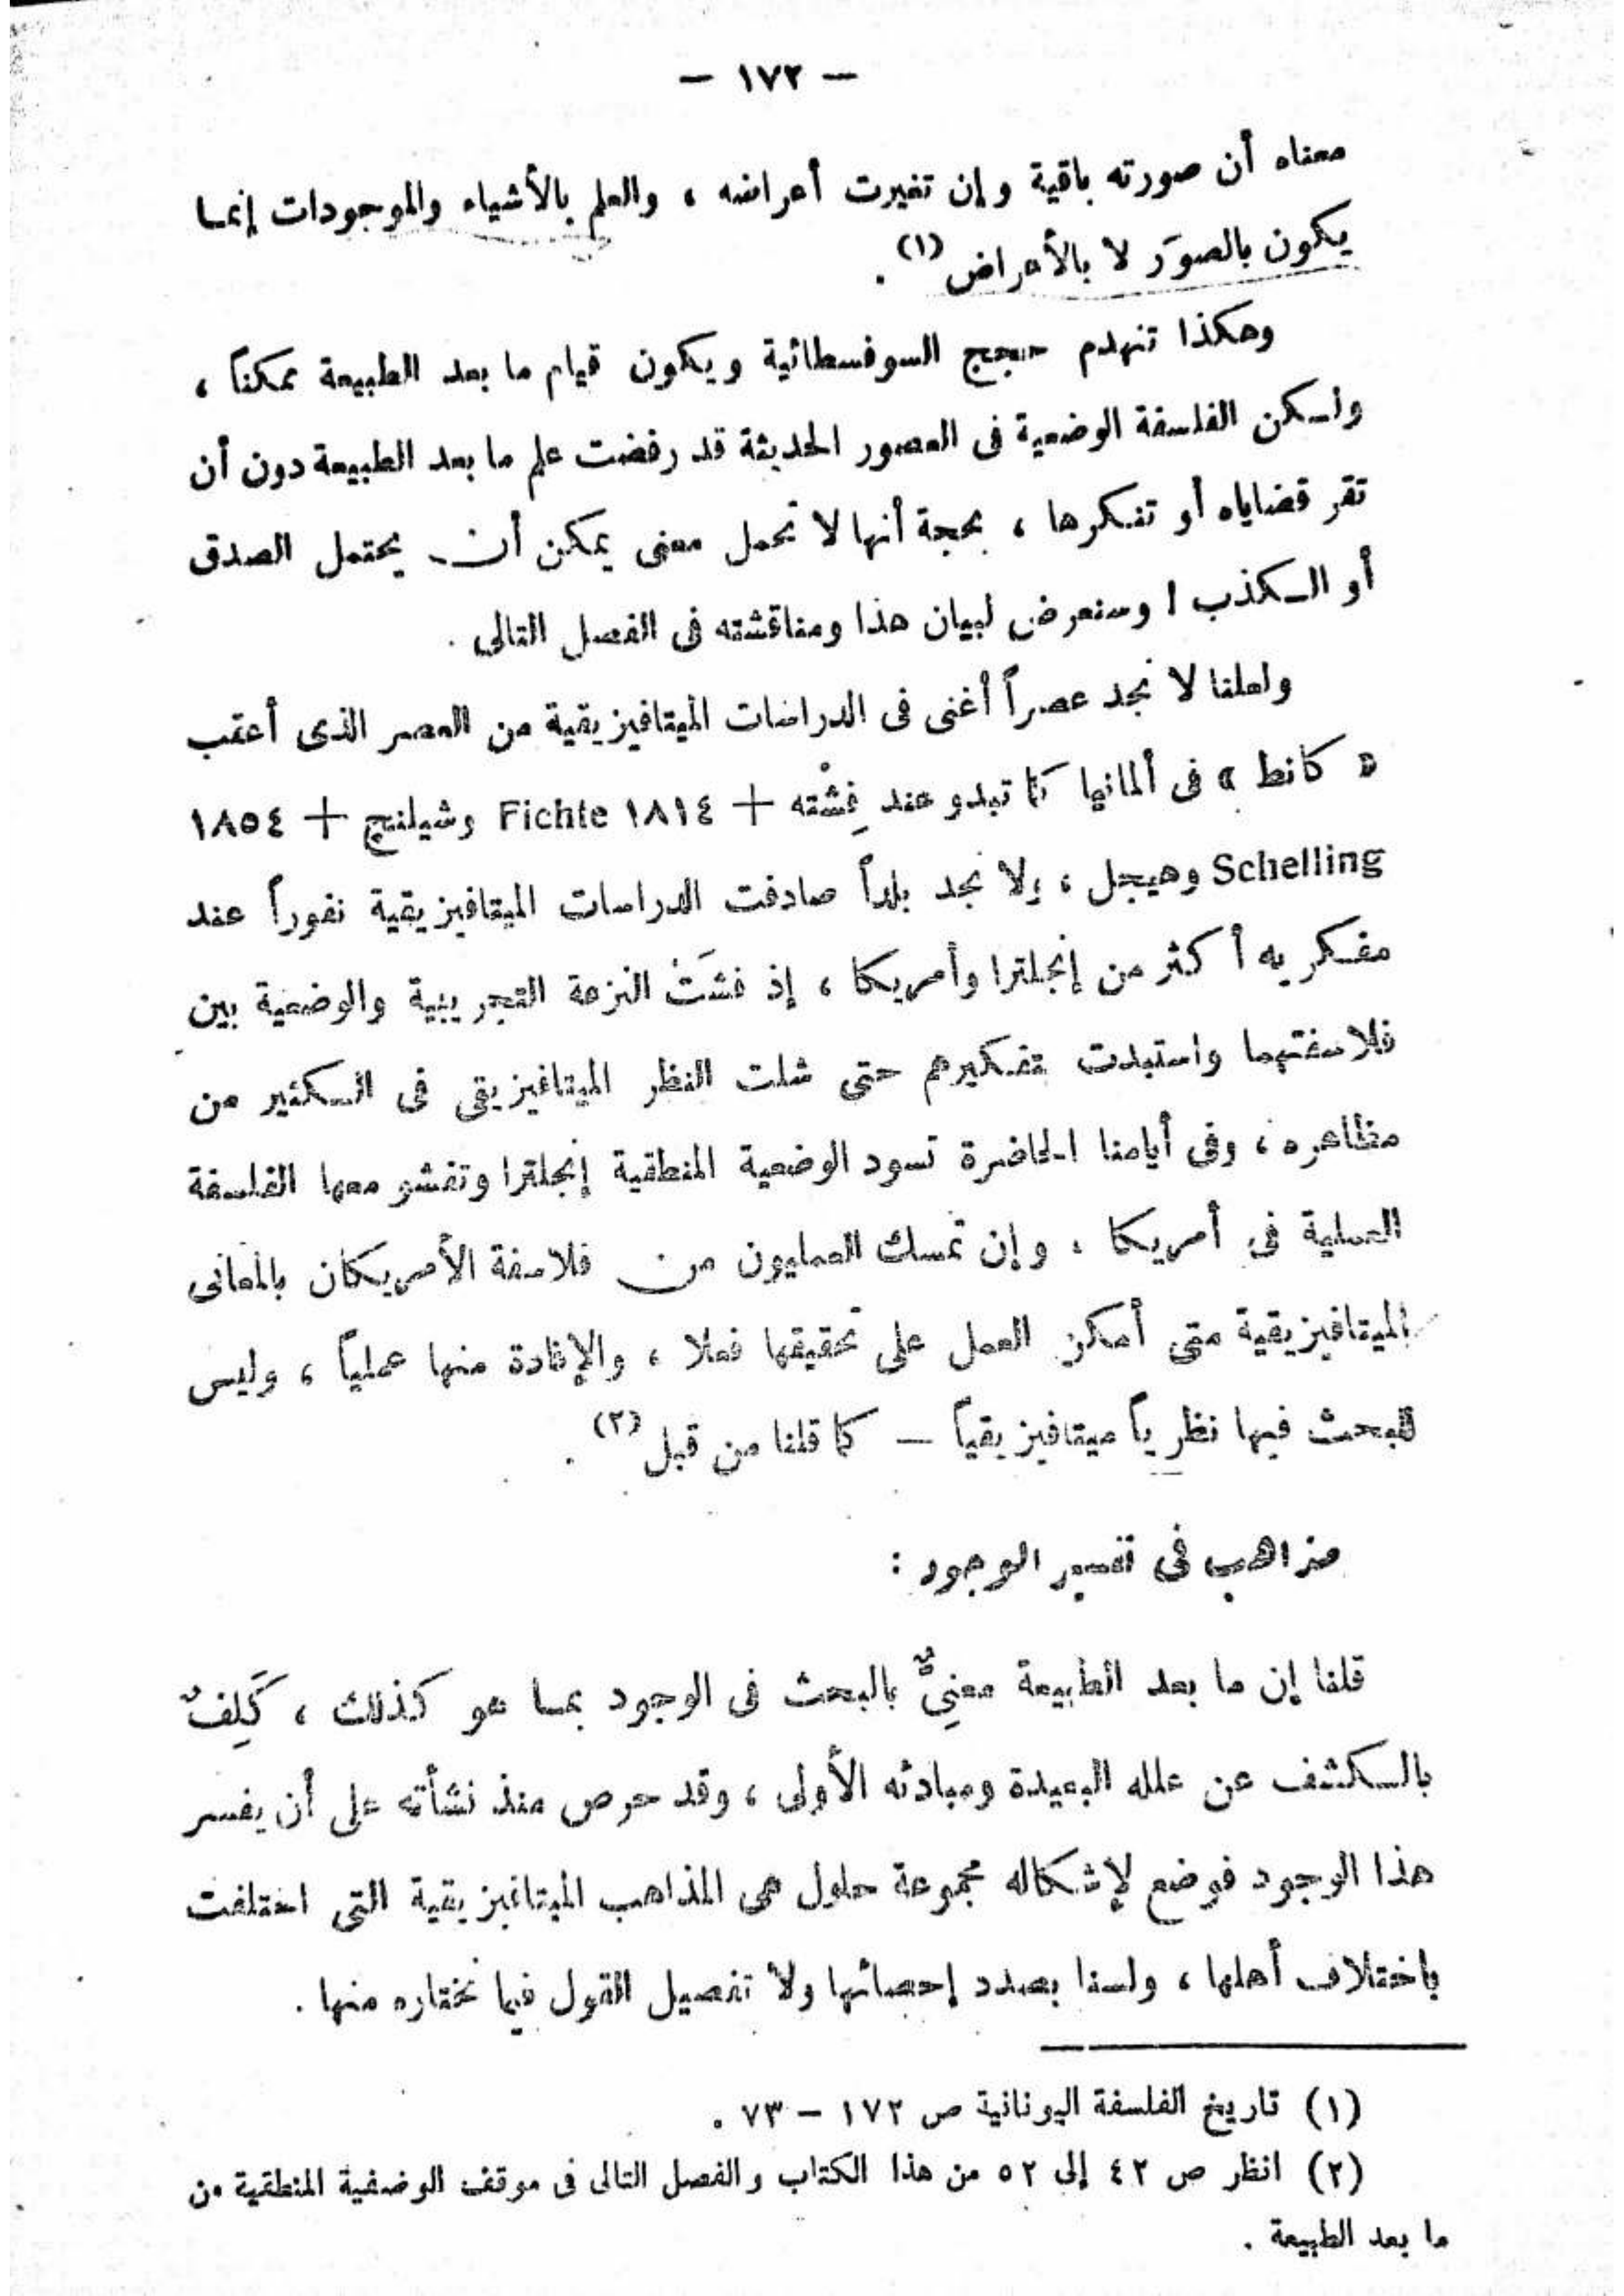 — ١٧٢ —
معناه أن صورته باقية وإن تغيرت أعراضه ، والعلم بالأشياء والموجودات إنما
يكون بالصوَر لا بالأعراض (١) .
وهكذا تنهدم حجج السوفسطائية ويكون قيام ما بعد الطبيعة ممكناً ،
ولكن الفلسفة الوضعية فى العصور الحديثة قد رفضت علم ما بعد الطبيعة دون أن
تقر قضاياه أو تنكرها ، بحجة أنها لا تحمل معنى يمكن أن يحتمل الصدق
أو الكذب ! وسنعرض لبيان هذا ومناقشته فى الفصل التالى .
ولعلنا لا نجد عصراً أغنى فى الدراسات الميتافيزيقية من العصر الذى أعقب
« كانط » فى ألمانيا كما تبدو عند فِشْته + ١٨١٤ Fichte وشيلنج + ١٨٥٤
Schelling وهيجل ، ولا نجد بلداً صادفت الدراسات الميتافيزيقية نفوراً عند
مفكريه أكثر من إنجلترا وأمريكا ، إذ فشَتْ النزعة التجريبية والوضعية بين
فلاسفتهما واستبدت بتفكيرهم حتى شلت النظر الميتافيزيقى فى الكثير من
مظاهره ، وفى أيامنا الحاضرة تسود الوضعية المنطقية إنجلترا وتفشو معها الفلسفة
العملية فى أمريكا ، وإن تمسك العمليون من فلاسفة الأمريكان بالمعانى
الميتافيزيقية متى أمكن العمل على تحقيقها فعلا ، والإفادة منها عملياً ، وليس
للبحث فيها نظرياً ميتافيزيقياً — كما قلنا من قبل (٢) .
مذاهب فى تفسير الوجود :
قلنا إن ما بعد الطبيعة معنِىٌّ بالبحث فى الوجود بما هو كذلك ، كَلِفٌ
بالكشف عن علله البعيدة ومبادئه الأولى ، وقد حرص منذ نشأته على أن يفسر
هذا الوجود فوضع لإشكاله مجموعة حلول هى المذاهب الميتافيزيقية التى اختلفت
باختلاف أهلها ، ولسنا بصدد إحصائها ولا تفصيل القول فيما نختاره منها .
(١) تاريخ الفلسفة اليونانية ص ١٧٢ – ٧٣ .
(٢) انظر ص ٤٢ إلى ٥٢ من هذا الكتاب والفصل التالى فى موقف الوضعية المنطقية من
ما بعد الطبيعة .